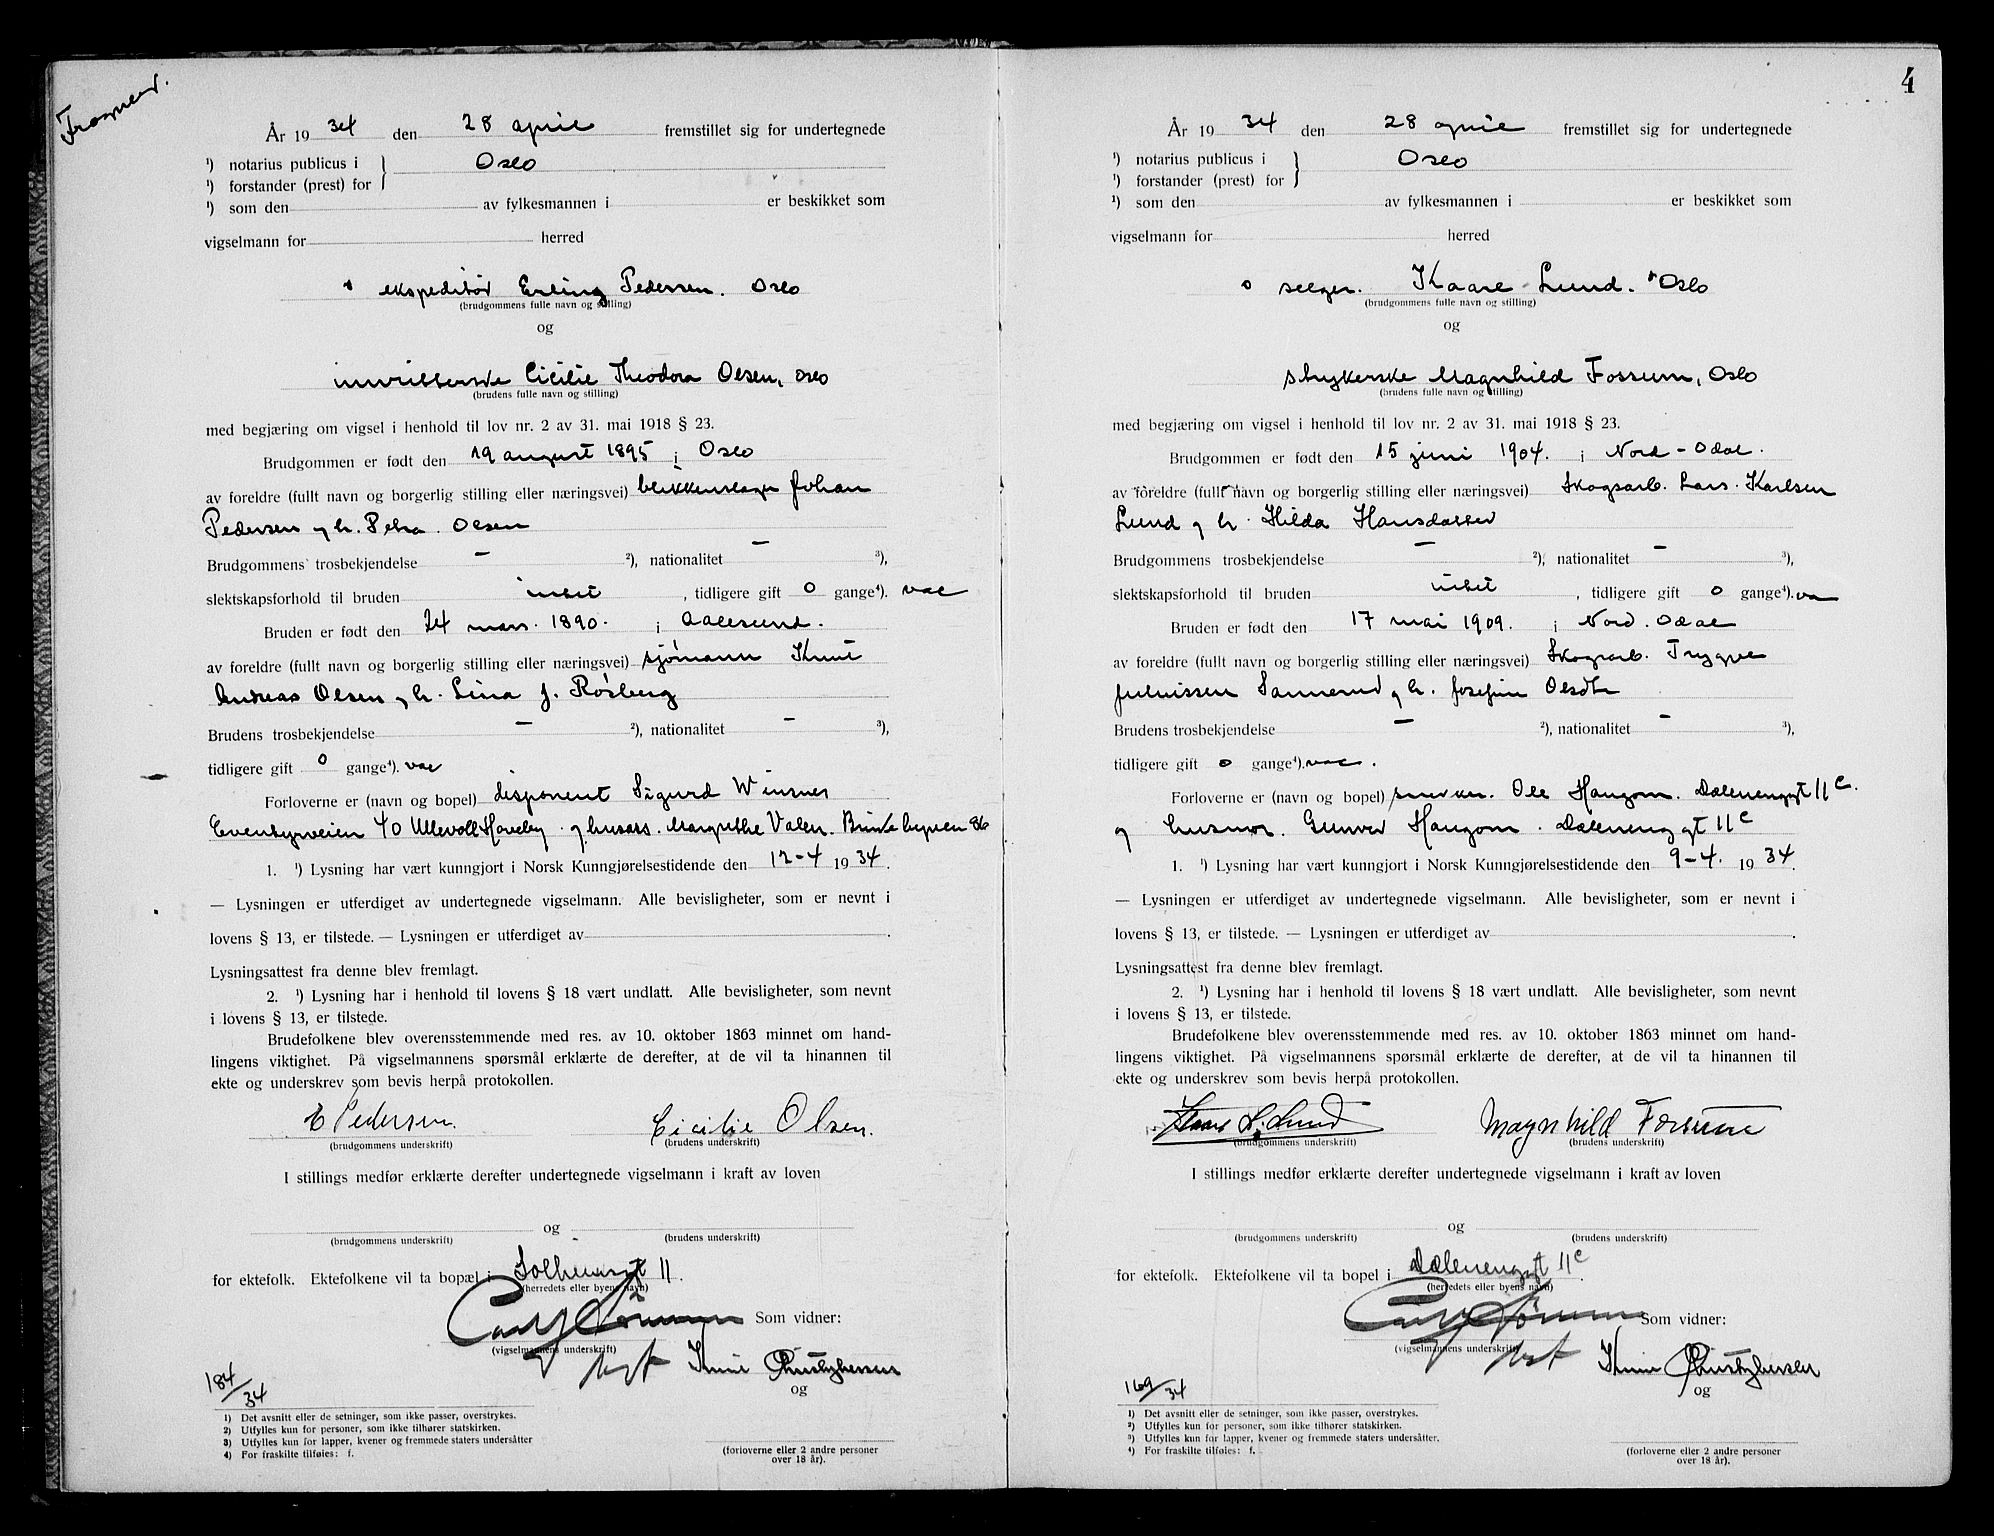 Frogner.
År 19 34 den 28 april fremstillet sig for undertegnede
¹) notarius publicus i } Oslo
¹) forstander (prest) for
¹) som den av fylkesmannen i er beskikket som
vigselmann for herred
ekspeditør Erling Pedersen. Oslo
(brudgommens fulle navn og stilling)
og
Cicilie Theodora Olsen, Oslo
(brudens fulle navn og stilling)
med begjæring om vigsel i henhold til lov nr. 2 av 31. mai 1918 § 23.
Brudgommen er født den 19 august 1895 i Oslo
av foreldre (fullt navn og borgerlig stilling eller næringsvei) blikkenslager Johan
Pedersen og h. Petra. Olsen
Brudgommens trosbekjendelse — ²), nationalitet — ³),
slektskapsforhold til bruden intet , tidligere gift 0 gange⁴). vac
Bruden er født den 24 mars. 1890. i Aalesund.
av foreldre (fullt navn og borgerlig stilling eller næringsvei) sjømann Knut
Andreas Olsen og h. Lina J. Røsberg
Brudens trosbekjendelse — ²), nationalitet — ³),
tidligere gift 0 gange⁴). vac
Forloverne er (navn og bopel) disponent Sigurd Winsnes
Eventyrveien 40 Ullevoll Haveby og husass. Margrethe Valen. Brinkebyveien 86
1. ¹) Lysning har vært kunngjort i Norsk Kunngjørelsestidende den 12-4 19 34.
— Lysningen er utferdiget av undertegnede vigselmann. Alle bevisligheter, som er nevnt i
lovens § 13, er tilstede. — Lysningen er utferdiget av .
Lysningsattest fra denne blev fremlagt.
2. ¹) Lysning har i henhold til lovens § 18 vært undlatt. Alle bevisligheter, som nevnt
i lovens § 13, er tilstede.
Brudefolkene blev overensstemmende med res. av 10. oktober 1863 minnet om hand-
lingens viktighet. På vigselmannens spørsmål erklærte de derefter, at de vil ta hinannen til
ekte og underskrev som bevis herpå protokollen.
E Pedersen. Cicilie Olsen.
(brudgommens underskrift) (brudens underskrift)
I stillings medfør erklærte derefter undertegnede vigselmann i kraft av loven
og
(brudgommens underskrift) (brudens underskrift)
for ektefolk. Ektefolkene vil ta bopæl i Solheimsgt 11.
(herredets eller byens navn)
Som vidner:
(vigselmannens underskrift)
Knut
og
184/34
¹) Det avsnitt eller de setninger, som ikke passer, overstrykes.
²) Utfylles kun for personer, som ikke tilhører statskirken.
³) Utfylles kun for lapper, kvener og fremmede staters undersåtter
⁴) For fraskilte tilføies: f.
(forloverne eller 2 andre personer
over 18 år).
4
År 19 34 den 28 april fremstillet sig for undertegnede
¹) notarius publicus i } Oslo
¹) forstander (prest) for
¹) som den av fylkesmannen i er beskikket som
vigselmann for herred
selger. Kaare Lund. Oslo
(brudgommens fulle navn og stilling)
og
strykerske Magnhild Fossum, Oslo
(brudens fulle navn og stilling)
med begjæring om vigsel i henhold til lov nr. 2 av 31. mai 1918 § 23.
Brudgommen er født den 15 juni 1904. i Nord-Odal.
av foreldre (fullt navn og borgerlig stilling eller næringsvei) Skogsarb. Lars. Karlsen
Lund og h. Hilda Hansdatter
Brudgommens trosbekjendelse — ²), nationalitet — ³),
slektskapsforhold til bruden intet , tidligere gift 0 gange⁴). vac
Bruden er født den 17 mai 1909. i Nord. Odal
av foreldre (fullt navn og borgerlig stilling eller næringsvei) Skogsarb. Trygve
Julnissen Sannerud og h. Josefine Olsdtr
Brudens trosbekjendelse — ²), nationalitet — ³),
tidligere gift 0 gange⁴). vac.
Forloverne er (navn og bopel) snekker. Ole Haugom. Dælenenggt 11c.
og husmor. Gunvor Haugom. Dælenenggt 11c
1. ¹) Lysning har vært kunngjort i Norsk Kunngjørelsestidende den 9-4. 19 34.
— Lysningen er utferdiget av undertegnede vigselmann. Alle bevisligheter, som er nevnt i
lovens § 13, er tilstede. — Lysningen er utferdiget av .
Lysningsattest fra denne blev fremlagt.
2. ¹) Lysning har i henhold til lovens § 18 vært undlatt. Alle bevisligheter, som nevnt
i lovens § 13, er tilstede.
Brudefolkene blev overensstemmende med res. av 10. oktober 1863 minnet om hand-
lingens viktighet. På vigselmannens spørsmål erklærte de derefter, at de vil ta hinannen til
ekte og underskrev som bevis herpå protokollen.
Kaare L. Lund Magnhild Fossum
(brudgommens underskrift) (brudens underskrift)
I stillings medfør erklærte derefter undertegnede vigselmann i kraft av loven
og
(brudgommens underskrift) (brudens underskrift)
for ektefolk. Ektefolkene vil ta bopel i Dælenenggt 11c.
(herredets eller byens navn)
Som vidner:
(vigselmannens underskrift)
Knut
og
169/34
¹) Det avsnitt eller de setninger, som ikke passer, overstrykes.
²) Utfylles kun for personer, som ikke tilhører statskirken.
³) Utfylles kun for lapper, kvener og fremmede staters undersåtter.
⁴) For fraskilte tilføies: f.
(forloverne eller 2 andre personer
over 18 år).